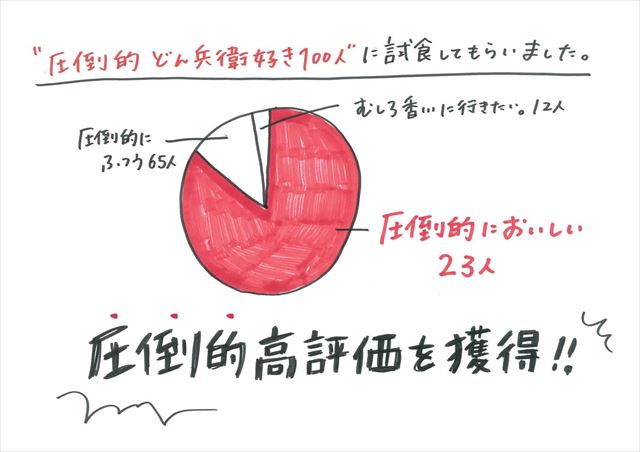 "圧倒的 どん兵衛好き100人"に試食してもらいました。
むしろ香川に行きたい。12人
圧倒的に
ふつう65人
圧倒的においしい
23人
圧倒的高評価を獲得!!